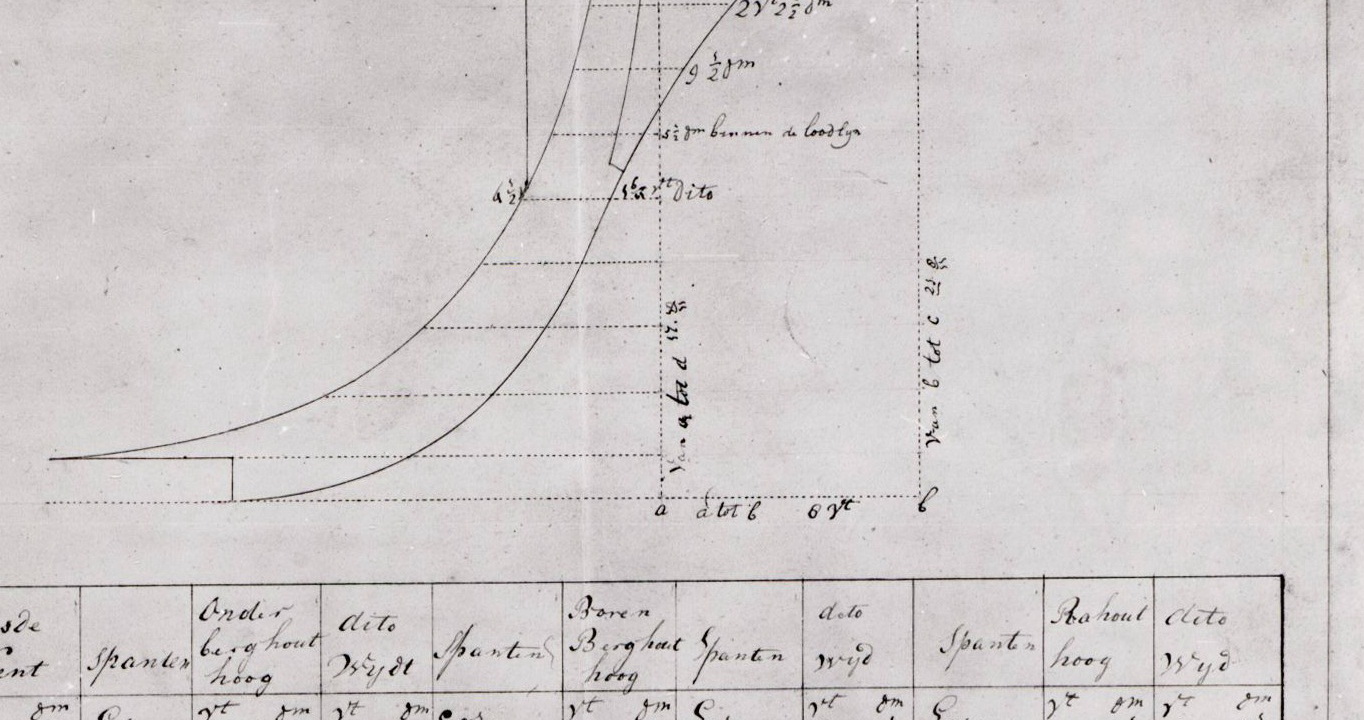 2 vt 2 1/2 dm
9 1/2 dm
5 1/2 dm binnen de loodlyn
vt Dito
Van a tot d
Van b tot c
a a tot b 6 vt b
Spanten
Onder
berghout
hoog
dito
Wydt
Spanten
Boven
Berghout
hoog
Spanten
dito
wyd
Spanten
Rahout
hoog
dito
Wyd
dm
vt dm
vt dm
vt dm
vt dm
vt dm
vt dm